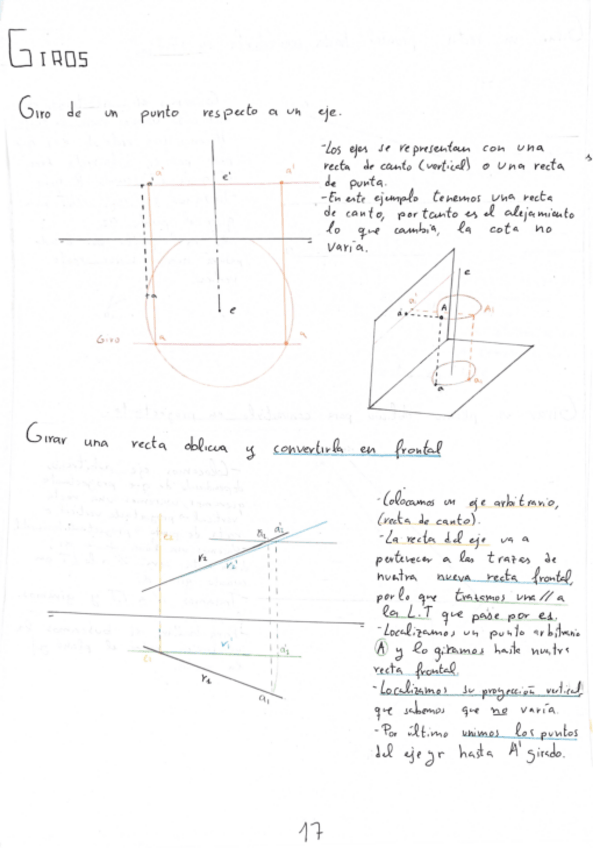 GIROS
Giro de un punto respecto a un eje.
-Los ejes se representan con una
recta de canto (vertical) o una recta
de punta.
-En este ejemplo tenemos una recta
de canto, por tanto es el alejamiento
lo que cambia, la cota no
varía.
a' a' e' a'
a e
Giro a a
e
a' A A1
a' a a1
Girar una recta oblicua y convertirla en frontal
-Colocamos un eje arbitrario,
(recta de canto).
-La recta del eje va a
pertenecer a las trazas de
nuestra nueva recta frontal,
por lo que trazamos una // a
la L.T que pase por e1.
-Localizamos un punto arbitrario
A y lo giramos hasta nuestra
recta frontal.
-Localizamos su proyección vertical
que sabemos que no varía.
-Por último unimos los puntos
del eje y r hasta A' girado.
e2 a2 a2'
r2 r2'
e1 r1' a1'
r1
a1
17